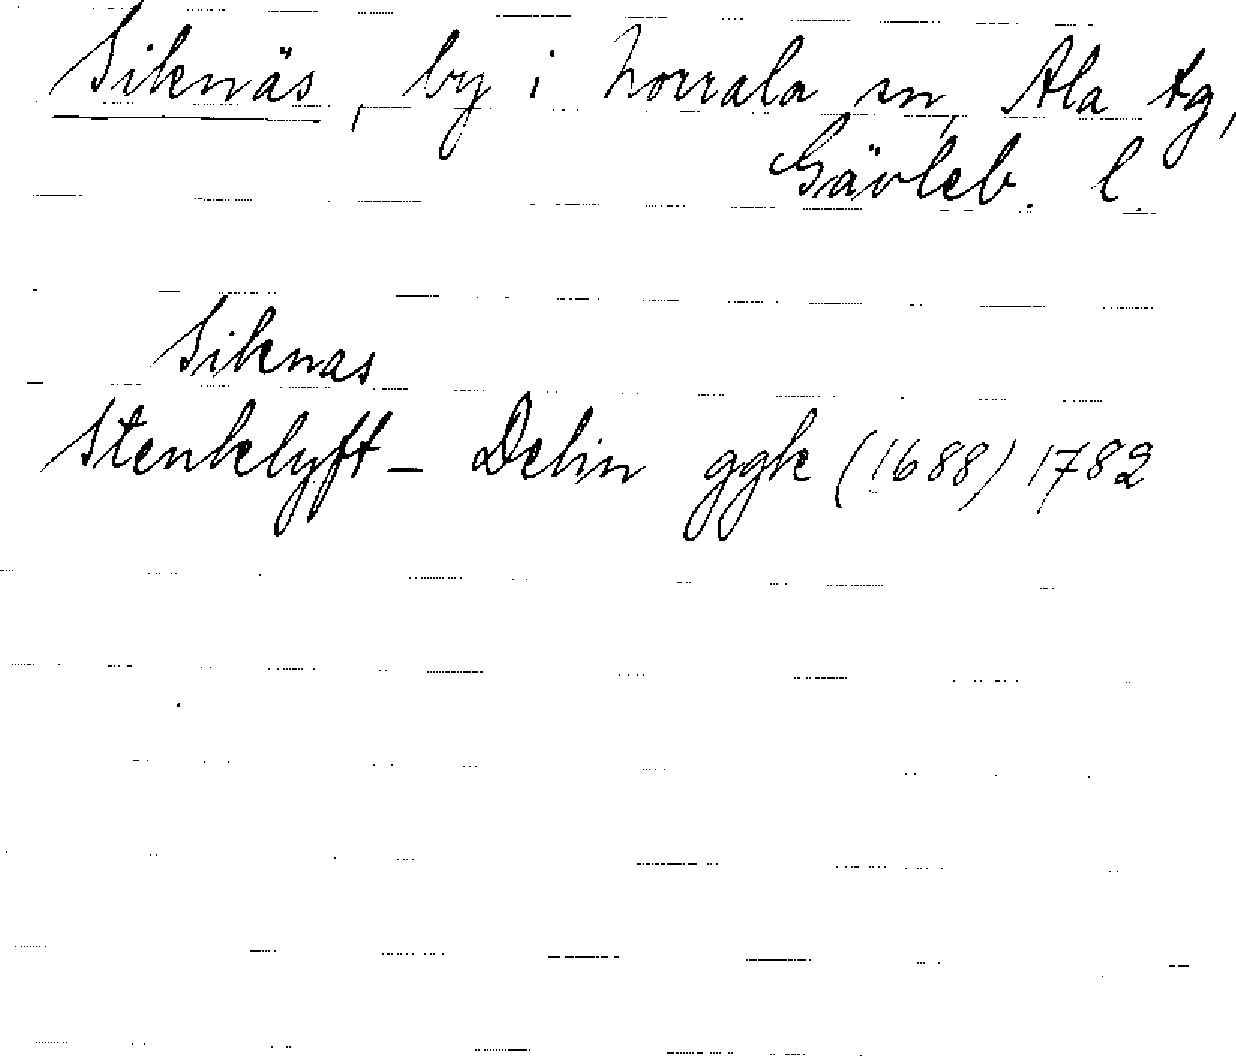 Siknäs, by i Norrala sn, Ala tg,
Gävleb. l.
Siknas
Stenklyft – Delin ggk (1688) 1782